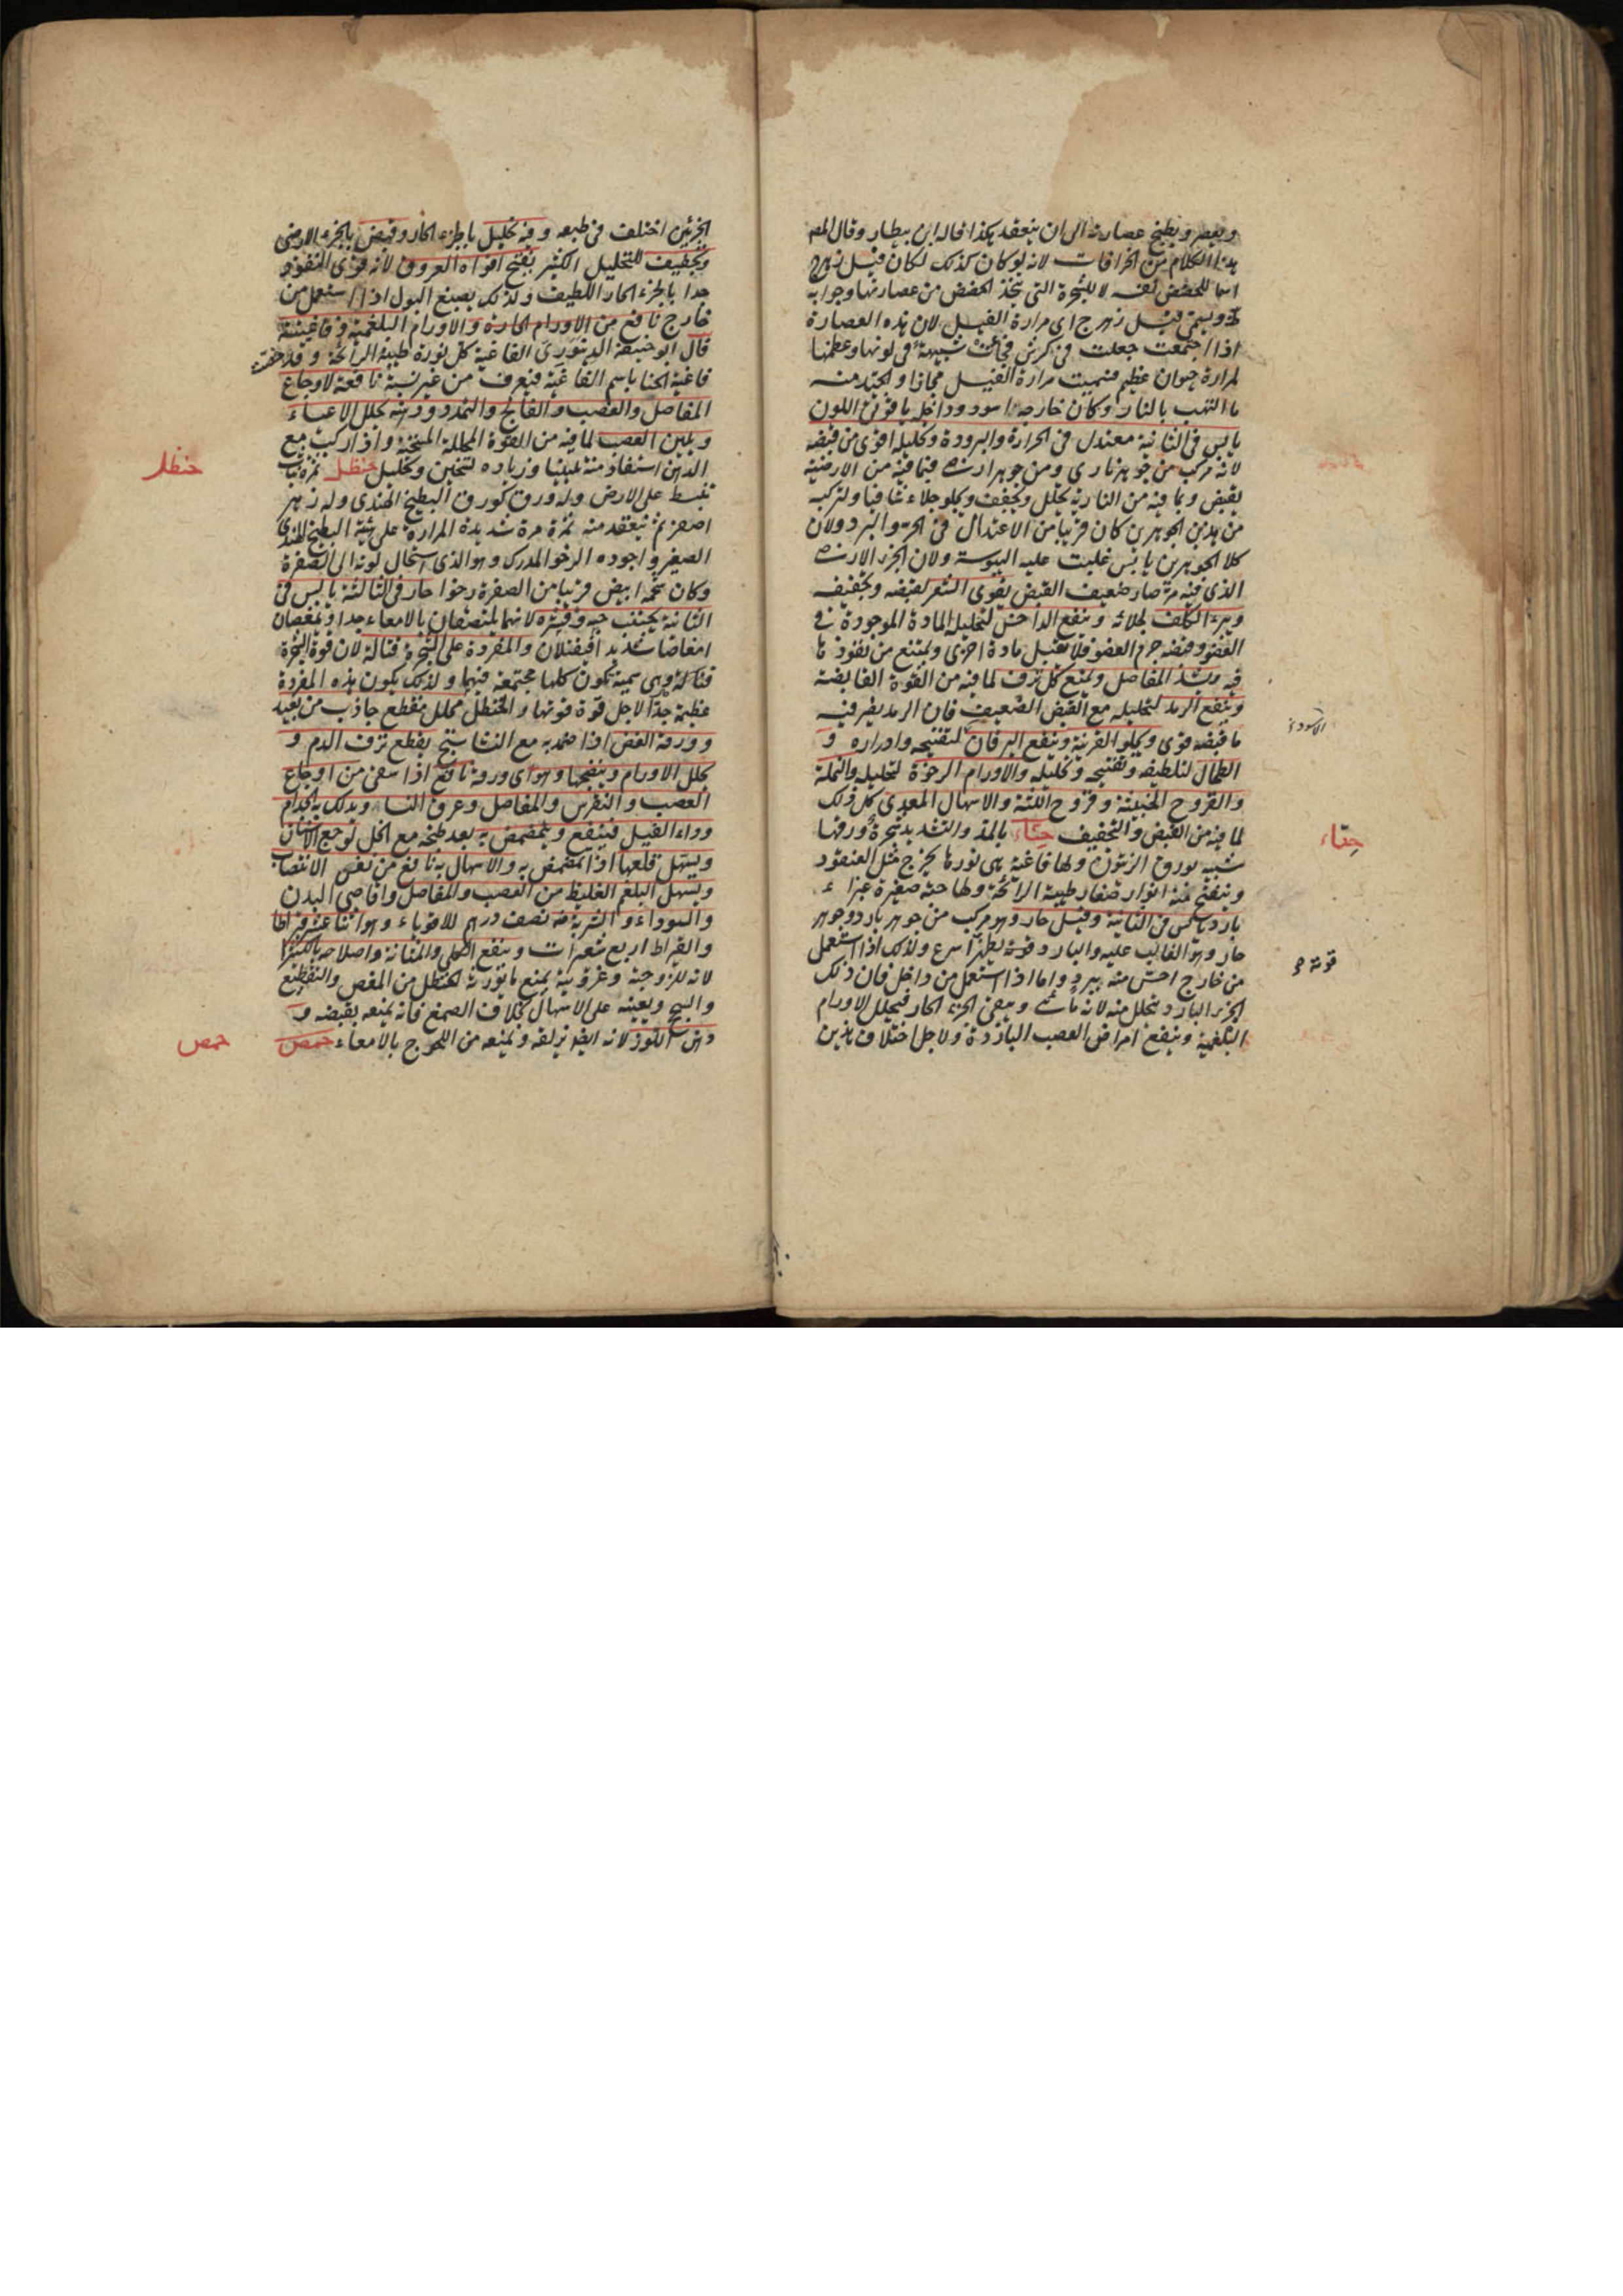 ويعصر ويطبخ عصارته الى ان ينعقد هكذا قاله ابن بيطار وقال المص
هذا الكلام من الخرافات لانه لو كان كذلك لكان فيل زهرج
اسما للحضض نفسه لا للشجرة التى يتخذ الحضض من عصارتها وجوابه
ويسمى فيل زهرج اى مرارة الفيل لان هذه العصارة
اذا اجتمعت جعلت فى كرش فجاءت شبيهة فى لونها وعظمها
لمرارة حيوان عظيم فسميت مرارة الفيل مجازا والجيد منه
ما التهب بالنار وكان خارجه اسود وداخل ياقوتى اللون
يابس فى الثانية معتدل فى الحرارة والبرودة وتحليله اقوى من قبضه
لانه مركب من جوهر نارى ومن جوهر ارضى فبما فيه من الارضية
يقبض وبما فيه من النارية يحلل ويجفف ويجلو جلاء شافيا ولتركبه
من هذين الجوهرين كان قريبا من الاعتدال فى الحر والبرد ولان
كلا الجوهرين يابس غلبت عليه اليبوسة ولان الجزء الارضى
الذى فيه صار ضعيف القبض يقوى الشعر لقبضه وتجفيفه
ويبرء الكلف لجلائه وينفع الداحس لتحليله المادة الموجودة فى
العضو وقبضه جرم العضو فلا يقبل مادة اخرى ويمتنع من نفوذ ما
فيه ويشد المفاصل ويمنع كل نزف لما فيه من القوة القابضة
وينفع الرمد لتحليله مع القبض الضعيف فان الرمد يضر فيه
ما قبضه قوى ويجلو القرنية وينفع اليرقان لتفتيحه وادراره و
الطحال لتلطيفه وتفتيحه وتحليله والاورام الرخوة لتحليله والنملة
والقروح الخبيثة وقروح اللثة والاسهال المعدى كل ذلك
لما فيه من القبض والتجفيف حنّاء بالمد والتشديد شجرة ورقها
شبيه بورق الزيتون ولها فاغية هى نورها يخرج مثل العنقود
وينفتح منه انوار صغار طيبة الرائحة ولها حبة صغيرة غبراء
بارد يابس فى الثانية وقيل حار وهو مركب من جوهر بارد وجوهر
حار وهو الغالب عليه والبارد قوته يظهر اسرع ولذلك اذا استعمل
من خارج احس منه ببرد واما اذا استعمل من داخل فان ذلك
الجزء البارد يتحلل منه لانه مائى ويبقى الجزء الحار فيحلل الاورام
البلغمية وينفع امراض العصب الباردة ولاجل اختلاف هذين
حنّاء
قوته
الجزئين اختلف فى طبعه وفيه تحليل بالجزء الحار وقبض بالجزء الارضى
وتجفيف للتحليل الكثير يفتح افواه العروق لانه قوى النفوذ
جدا بالجزء الحار اللطيف ولذلك يصبغ البول اذا استعمل من
خارج نافع من الاورام الحارة والاورام البلغمية وفاغيته
قال ابو حنيفة الدينورى الفاغية كل نورة طيبة الرائحة وقد خصت
فاغية الحنا باسم الفاغية فيعرف من غير نسبة نافعة لاوجاع
المفاصل والعصب والفالج والتمدد ودهنه يحلل الاعياء
ويلين العصب لما فيه من القوة المحللة المسخنة واذا ركب مع
الدهن استفاد منه تليينا وزيادة تسخين وتحليل حنظل ثمرة نبات
تنبسط على الارض وله ورق كورق البطيخ الهندى وله زهر
اصفر ثم ينعقد منه ثمرة مرة شديدة المرارة على هيئة البطيخ الهندى
الصغير واجوده الرخو المدرك وهو الذى استحال لونه الى الصفرة
وكان شحمه ابيض قريبا من الصفرة رخوا حار فى الثالثة يابس فى
الثانية يجتنب حبه وقشره لانهما يلتصقان بالامعاء جدا ويمغصان
امغاصا شديدا فيقتلان والمفردة على الشجرة قتالة لان قوة الشجرة
قتالة وهى سمية تكون كلها مجتمعة فيها ولذلك يكون هذه المفردة
عظيمة جدا لاجل قوة قوتها والحنظل محلل مقطع جاذب من بعيد
وورقه الغض اذا ضمد به مع النشاستج يقطع نزف الدم و
يحلل الاورام وينضجها وهو اى ورقه نافع اذا سقى من اوجاع
العصب والنقرس والمفاصل وعرق النسا ويدلك به الجذام
وداء الفيل فينفع ويتمضمض به بعد طبخه مع الخل لوجع الاسنان
ويسهل قلعها اذا تمضمض به والاسهال به نافع من نفس الانتصاب
ويسهل البلغم الغليظ من العصب والمفاصل واقاصى البدن
والسوداء والشربة منه نصف درهم للاقوياء وهو اثنا عشر قيراطا
والقيراط اربع شعيرات وينفع الكلى والمثانة واصلاحه بالكثيرا
لانه للزوجته وغرويته يمنع ما يورثه الحنظل من المغص والتقطيع
والسحج ويعينه على الاسهال بخلاف الصمغ فانه يمنعه بقبضه و
دهن اللوز لانه ايضا يزلقه ويمنعه من اللحوج بالامعاء حمص
حنظل
حمص